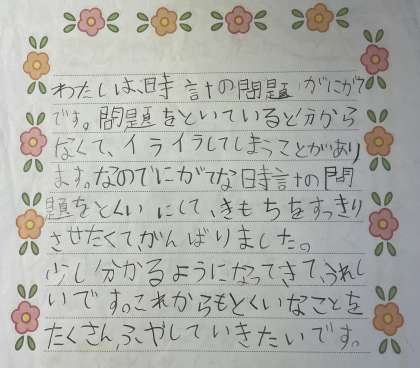 わたしは、時計の問題がにがて
です。問題をといていると分から
なくて、イライラしてしまうことがあり
ます。なのでにがてな時計の問
題をとくいにして、きもちをすっきり
させたくてがんばりました。
少し分かるようになってきて、うれし
いです。これからもとくいなことを
たくさん、ふやしていきたいです。